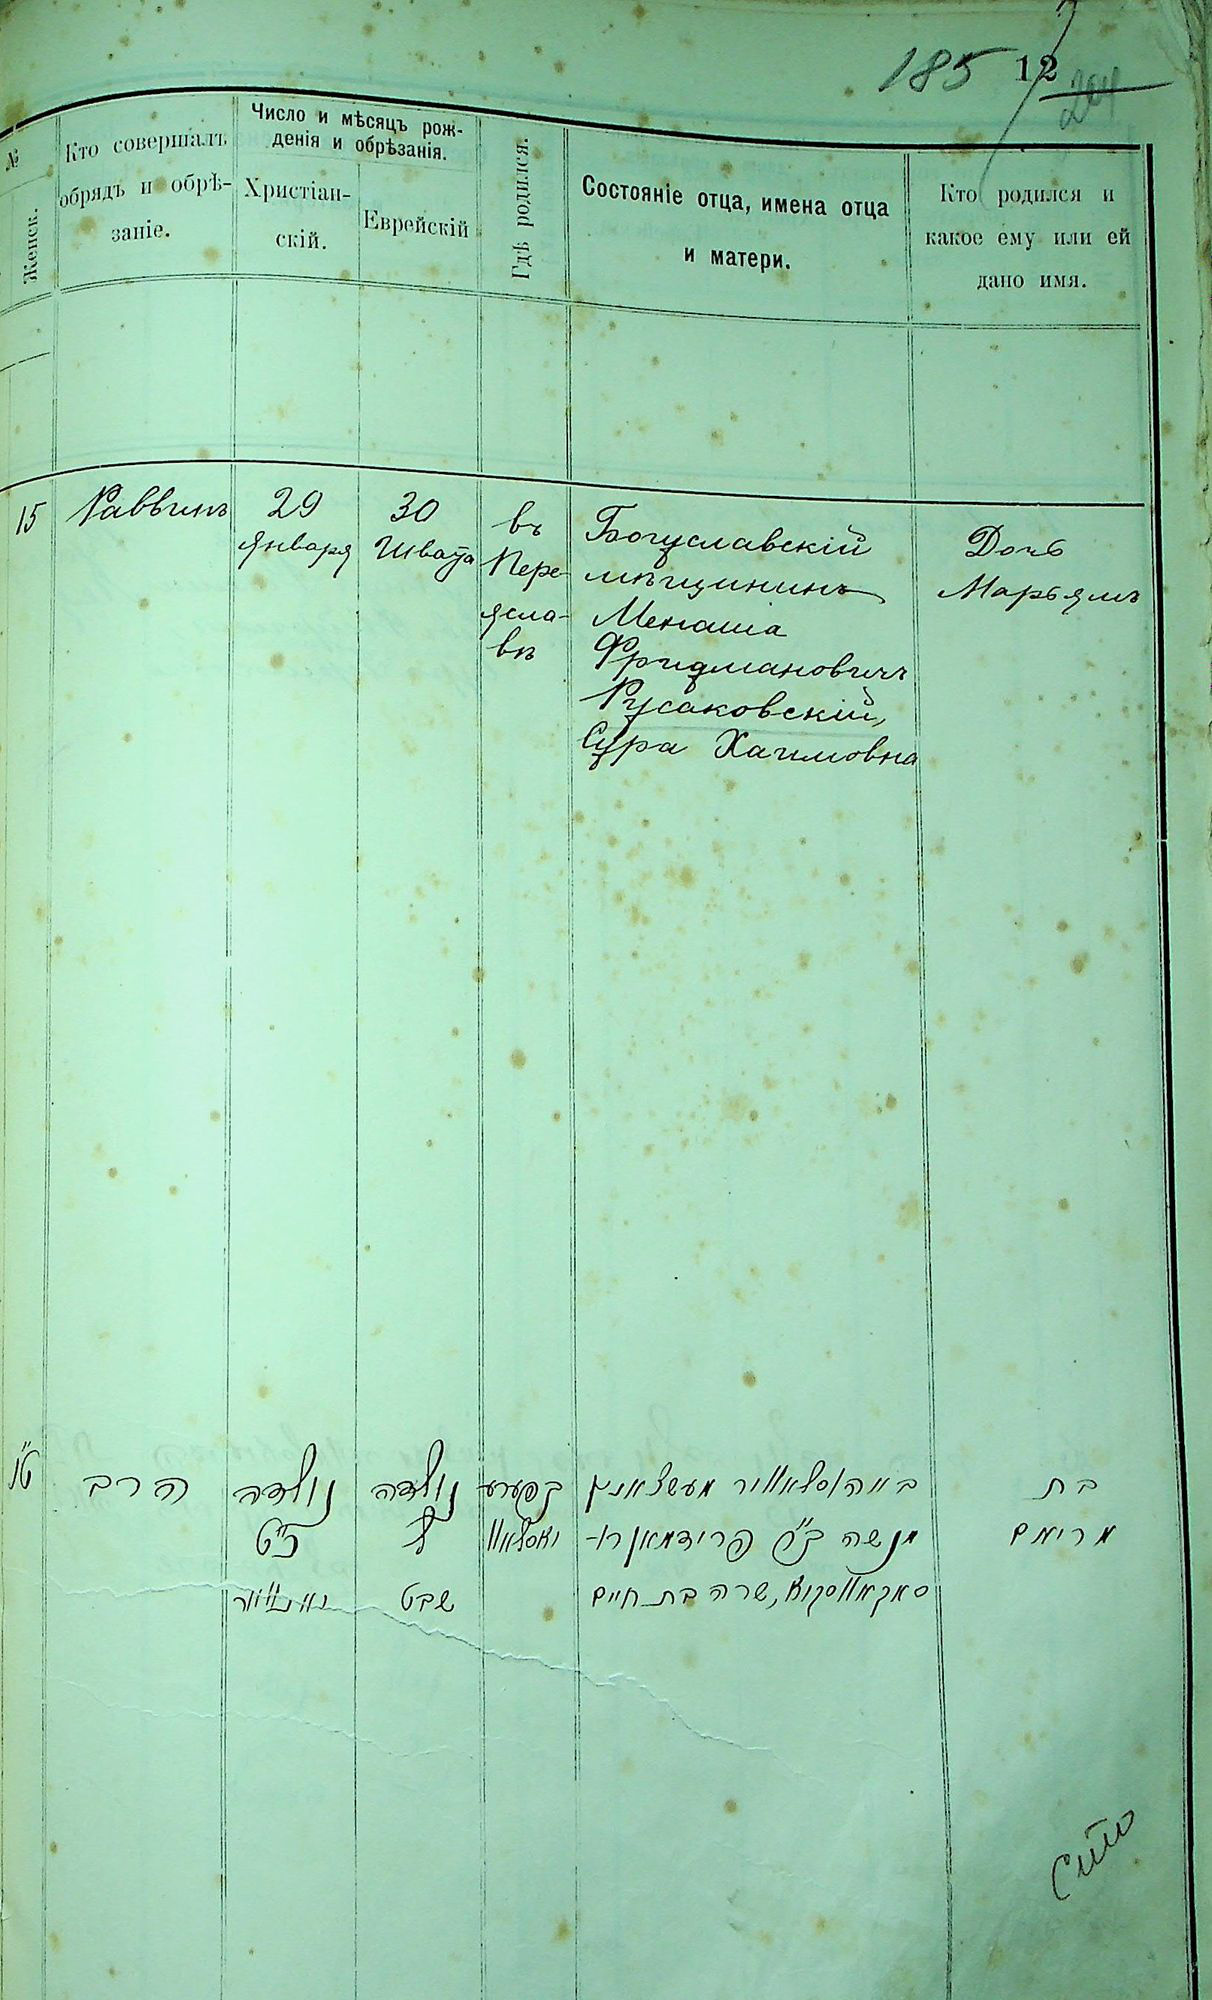 185 12
204
№
Женск.
Кто совершалъ
обрядъ и обрѣ-
заніе.
Число и мѣсяцъ рож-
денія и обрѣзанія.
Христіан-
скій.
Еврейскій
Гдѣ родился.
Состояніе отца, имена отца
и матери.
Кто родился и
какое ему или ей
дано имя.
15
Раввинъ
29
Января
30
Швата
въ
Пере-
ясла-
вѣ
Богуславскій
мѣщанинъ
Менаша
Фридмановичъ
Русаковскій,
Сура Хаимовна
Дочь
Марьямъ
ט"ו
הרב
נולדה
כ"ט
נולדה
ל
שבט
בפערע
יאסלאוו
מנשה ב"ר פרידמאן רו-
סאקאווסקי, שרה בת חיים
בת
מרים